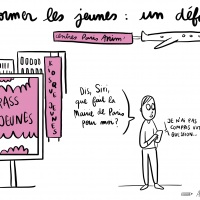 ORMER LES JEUNES : UN DÉF
Centres Paris Anim'
KIOSQUE JEUNES
PASS
JEUNES
Dis, Siri,
que fait la
Mairie de Paris
pour moi?
JE N'AI PAS
COMPRIS VOT
QUESTION...